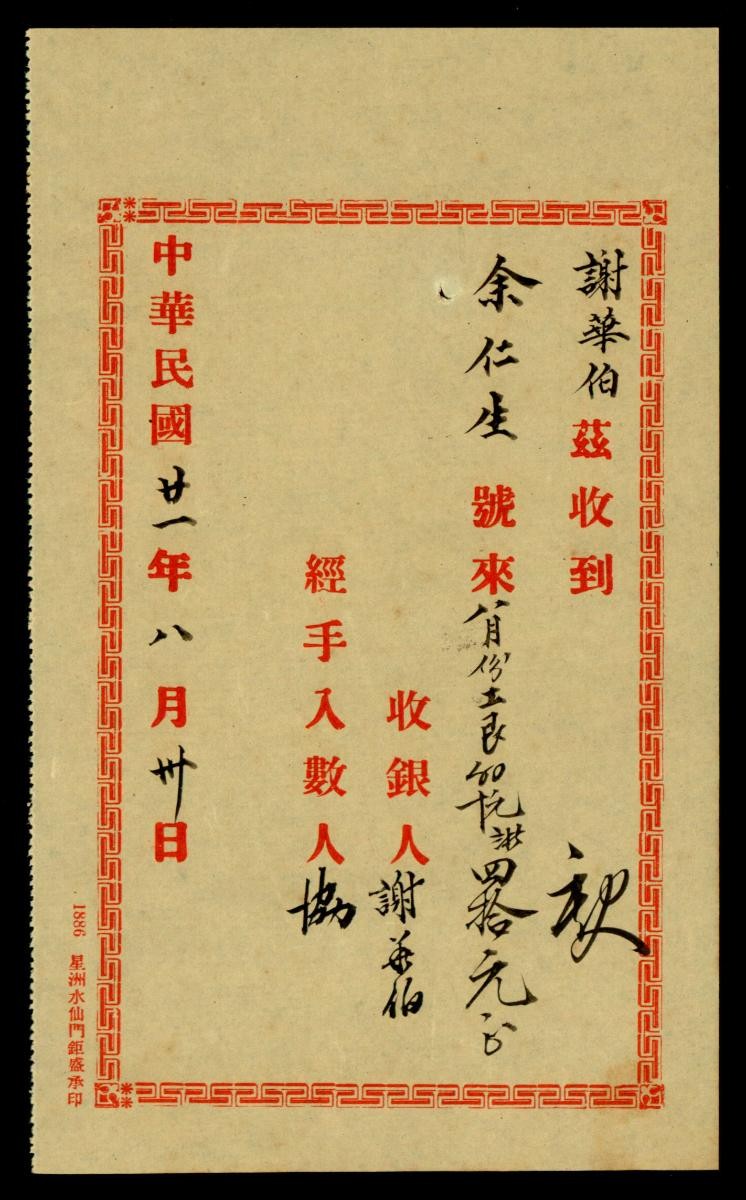 謝華伯茲收到
余仁生號來八月份士艮40大元 四拾元正
收銀人謝華伯
經手入數人協
中華民國廿一年八月卅日
1886 星洲水仙門鉅盛承印